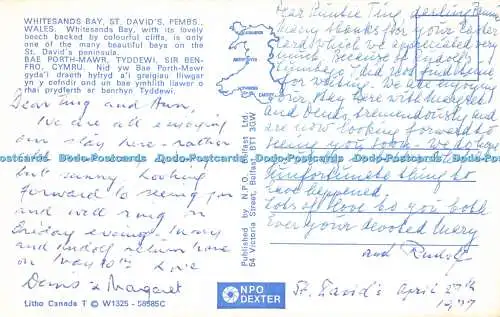 WHITESANDS BAY, ST. DAVID'S, PEMBS.,
WALES. Whitesands Bay, with its lovely
beach backed by colourful cliffs, is only
one of the many beautiful bays on the
St. David's peninsula.
BAE PORTH-MAWR, TYDDEWI, SIR BEN-
FRO, CYMRU. Nid yw Bae Porth-Mawr-
gyda'i draeth hyfryd a'i greigiau lliwgar
yn y cefndir ond un bae ymhlith llawer o
rhai prydferth ar benrhyn Tyddewi.
Dear and
We are all enjoying
our stay here - rather
but sunny Looking
forward to seeing you
and will ring on
Friday evening. Mary
and Rudolf return home
on May 10th Love
Dennis & Margaret
Litho Canada T © W1325 - 58585C
Published by N.P.O. Belfast Ltd.
54 Victoria Street, Belfast BT1 3GW
NPO
DEXTER
Dear Auntie
many thanks for your Easter
card which we appreciated very
much, because of Rudolf's
did not find time
for writing. We are enjoying
our stay here with Margaret
and Denis tremendously and
are now looking forward to
seeing you soon. We do hope
unfortunate thing to
have happened.
Lots of love to you both
Ever your devoted Mary
and Rudolf
St. David's April 27th
1977
Dodo-Postcards Dodo-Postcards Dodo-Postcards Dodo-Postcards Dodo-Postcards Dodo-Postcards